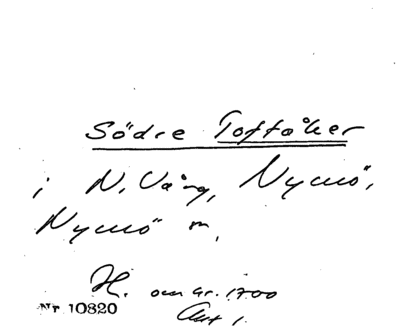 Södre Toftåker
i N. Vång, Nymö,
Nymö sn.
H. om gr. 1700
Akt 1.
Nr 10820